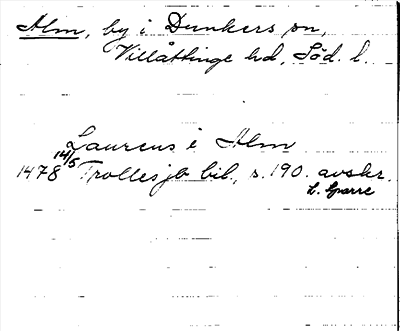 Alm, by i Dunkers sn,
Villåttinge hd, Söd. l.
Laurens i Alm
1478 14/5 Trollesjb bil., s. 190. avskr.
L. Sparre